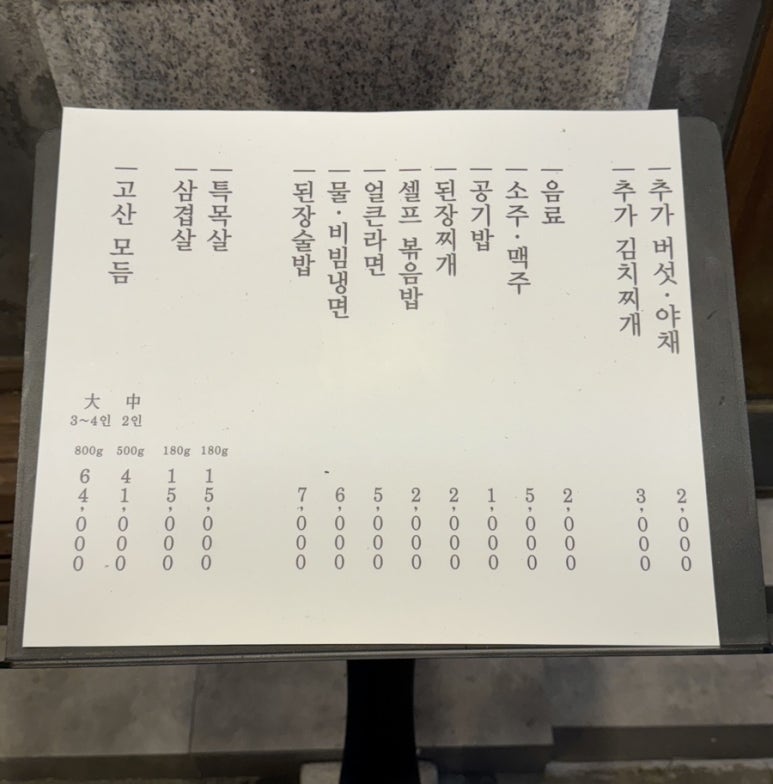 고산 모듬
大 3~4인 800g 64,000
中 2인 500g 41,000
삼겹살 180g 15,000
특목살 180g 15,000
된장술밥 7,000
물·비빔냉면 6,000
얼큰라면 5,000
셀프 볶음밥 2,000
된장찌개 2,000
공기밥 1,000
소주·맥주 5,000
음료 2,000
추가 김치찌개 3,000
추가 버섯·야채 2,000